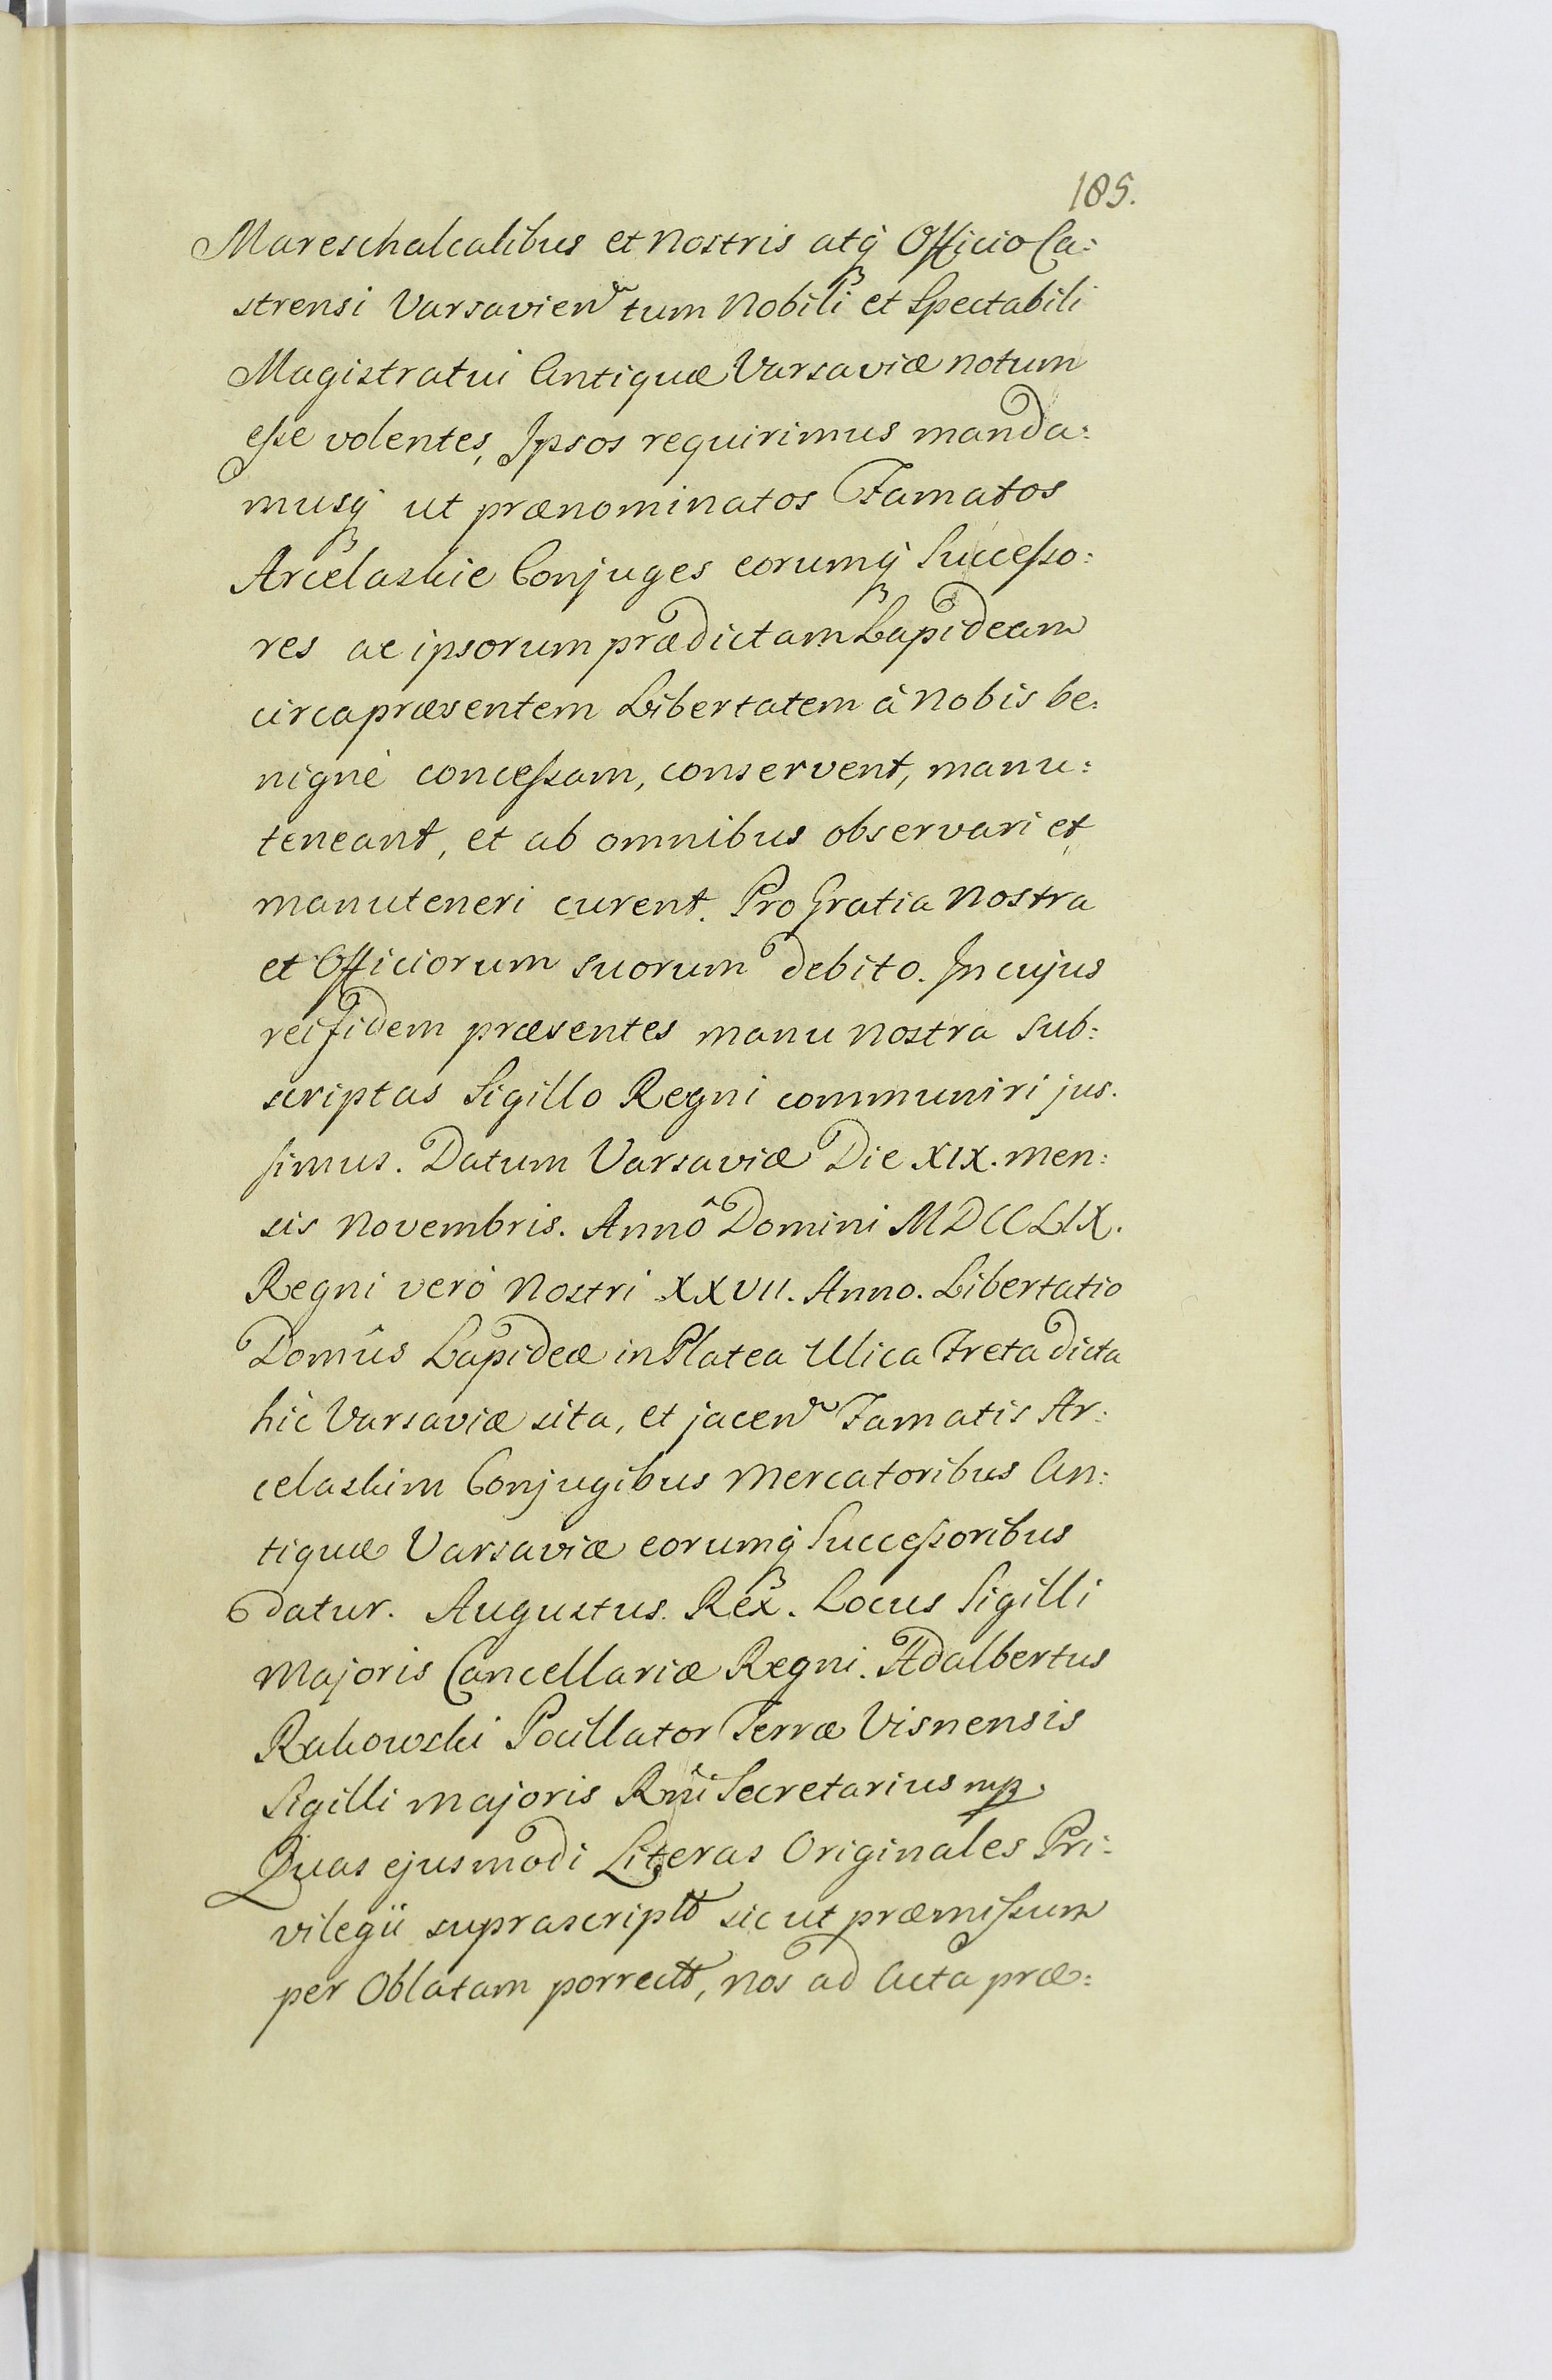 185.
Mareschalcalibus et Nostris atq; Officio Ca:
strensi Varsavien tum Nobili et Spectabili
Magistratui Antiquæ Varsaviæ notum
eſse volentes, Ipsos requirimus manda:
musq; ut prænominatos Famatos
Arcelaskie Conjuges eorumq; Succeſso:
res ac ipsorum prædictam Lapideam
circa præsentem Libertatem à Nobis be:
nignè conceſsam, conservent, manu:
teneant, et ab omnibus observari et
manuteneri curent. Pro Gratia Nostra
et Officiorum suorum debito. In cujus
rei fidem præsentes manu Nostra sub:
scriptas Sigillo Regni communiri jus.
simus. Datum Varsaviæ Die XIX. Men:
sis Novembris. Annô Domini MDCCLIX.
Regni verò Nostri XXVII. Anno. Libertatio
Domûs Lapideæ in Platea Ulica Freta dicta
hic Varsaviæ sita, et jacen Famatis Ar:
celaskim Conjugibus Mercatoribus An:
tiquæ Varsaviæ eorumq; Succeſsoribus
datur. Augustus Rex. Locus Sigilli
Majoris Cancellariæ Regni. Adalbertus
Rakowski Pocillator Terræ Visnensis
Sigilli Majoris Rñi Secretarius mp.
Quas ejusmodi Literas Originales Pri:
vilegii suprascript sic ut præmiſsum
per Oblatam porrect, nos ad Acta præ: